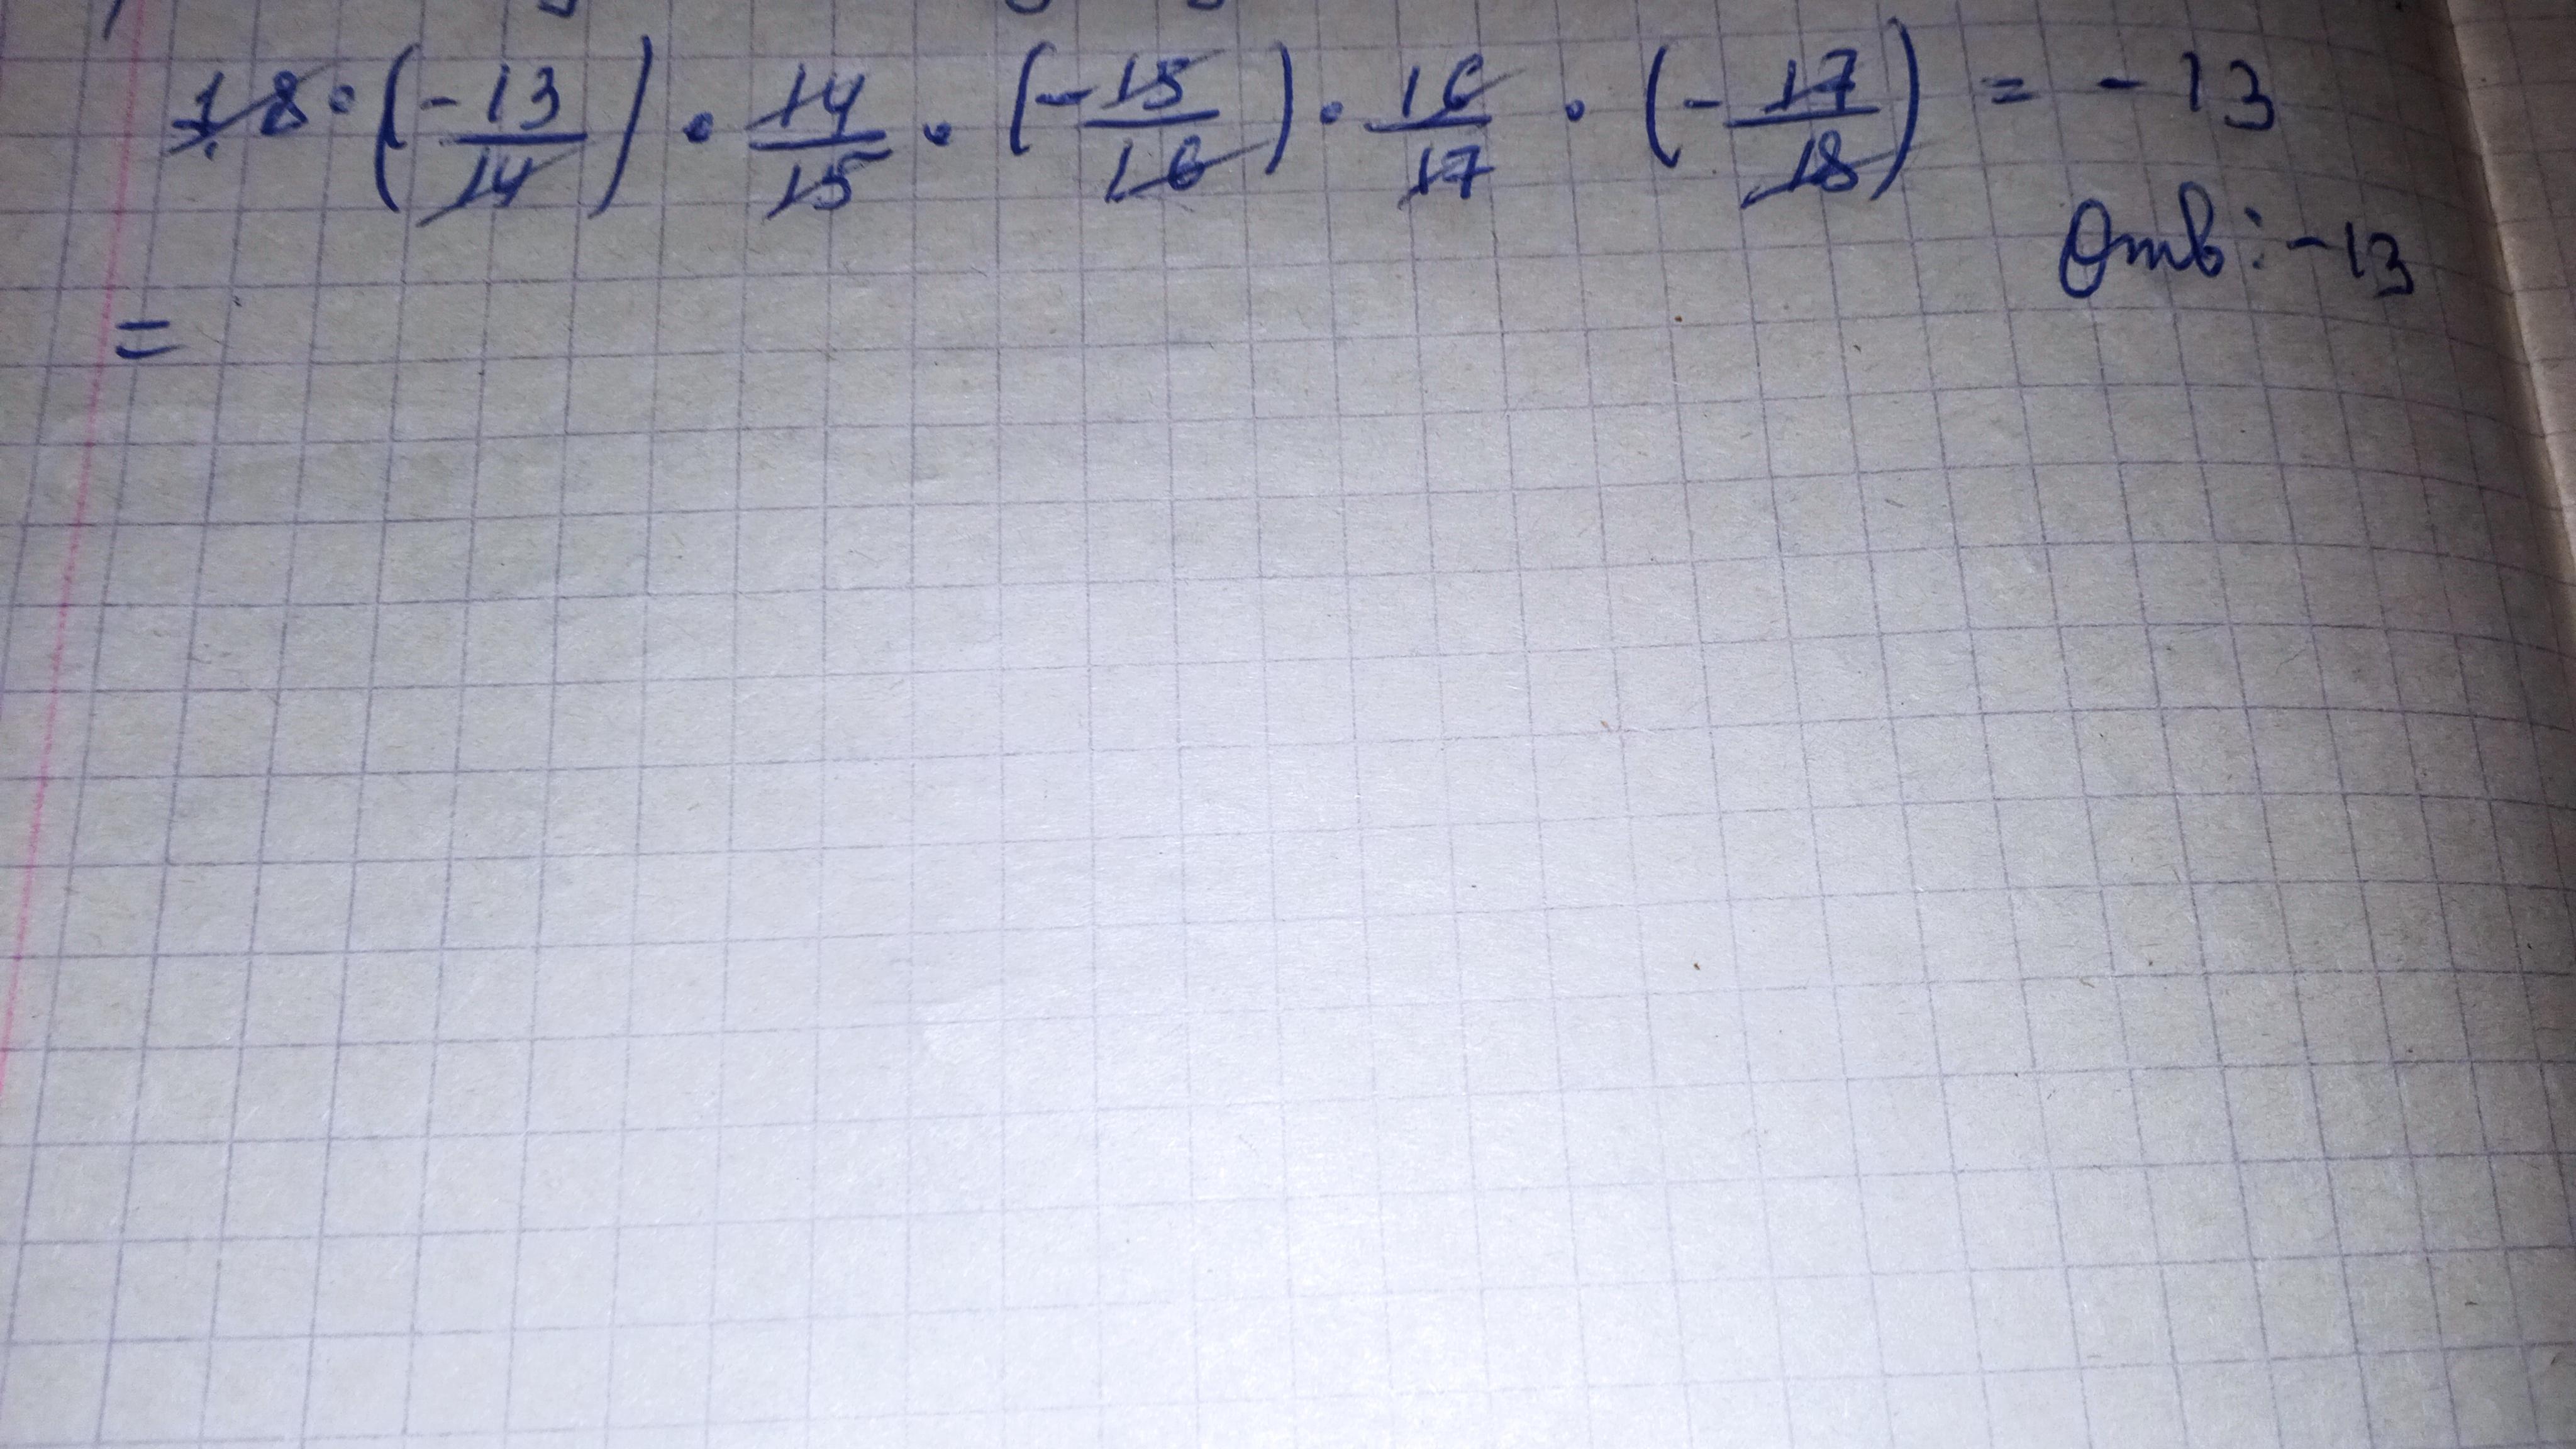 18 · (-13/14) · 14/15 · (-15/16) · 16/17 · (-17/18) = -13
Отв: -13
=